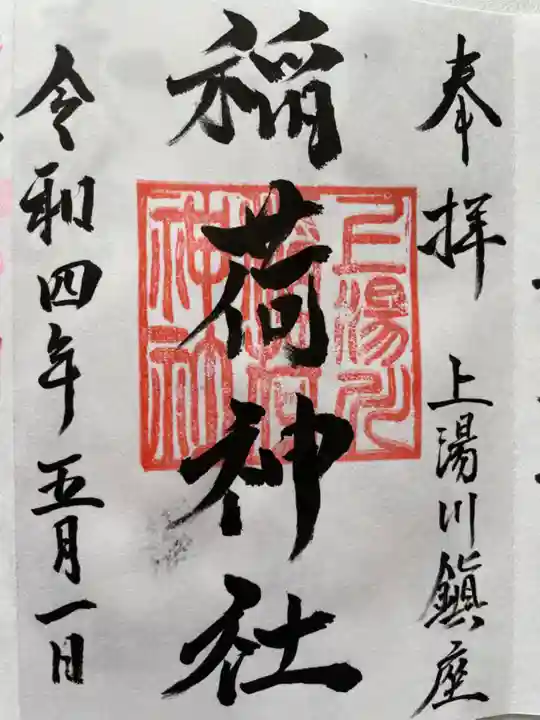 奉拝 上湯川鎮座
稲荷神社
上湯川
稲荷
神社
令和四年五月一日